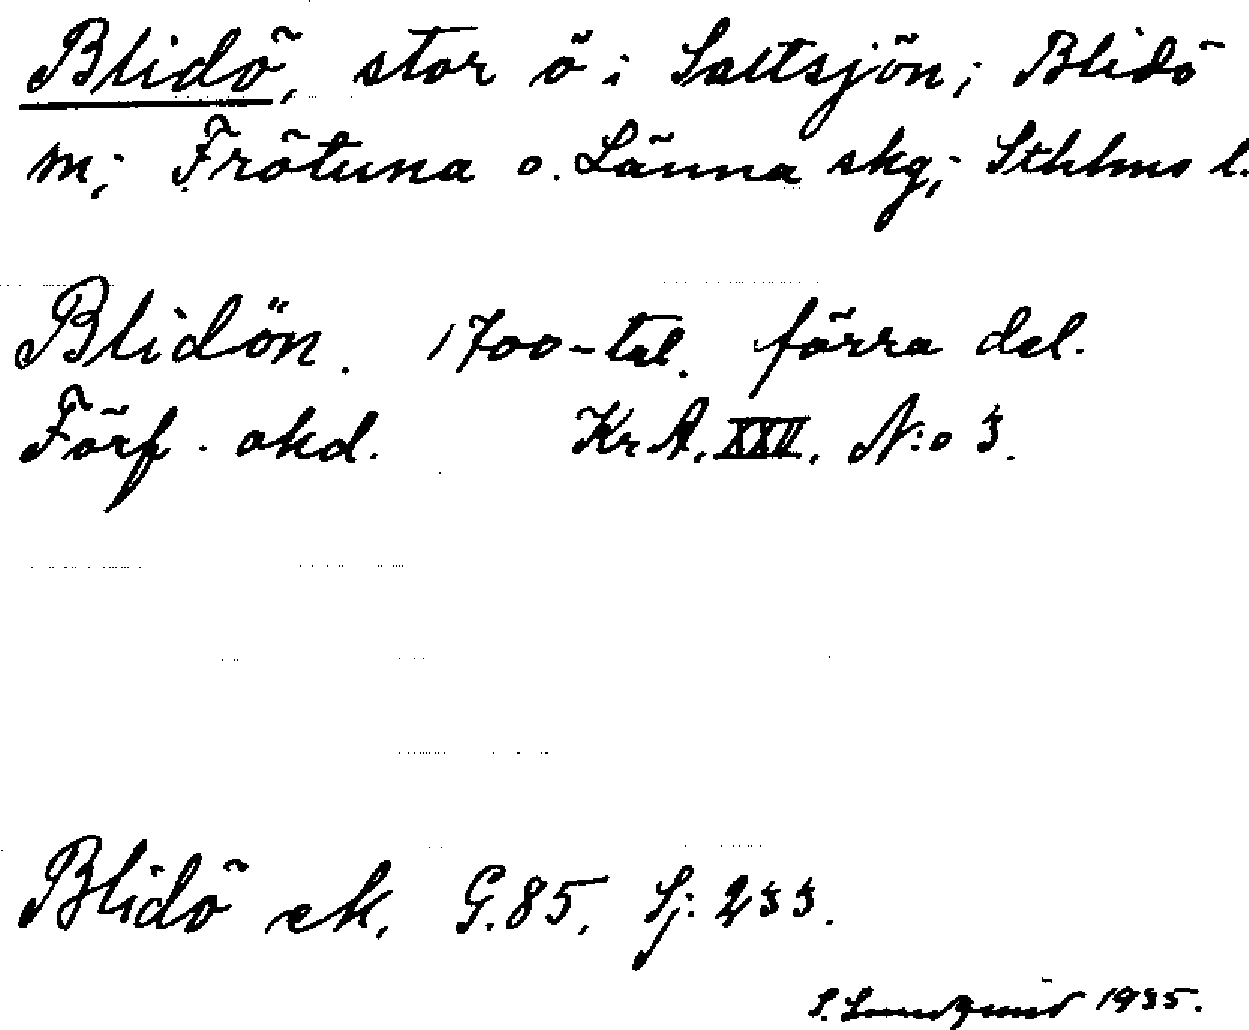 Blidö, stor ö i Saltsjön; Blidö
m; Frötuna o. Länna skg; Sthlms l.
Blidön. 1700-tal. förra del.
Förf. okd. Kr A. XXV. N:o 3.
Blidö ek. G. 85. Sj: 233.
S. Lundqvist 1935.